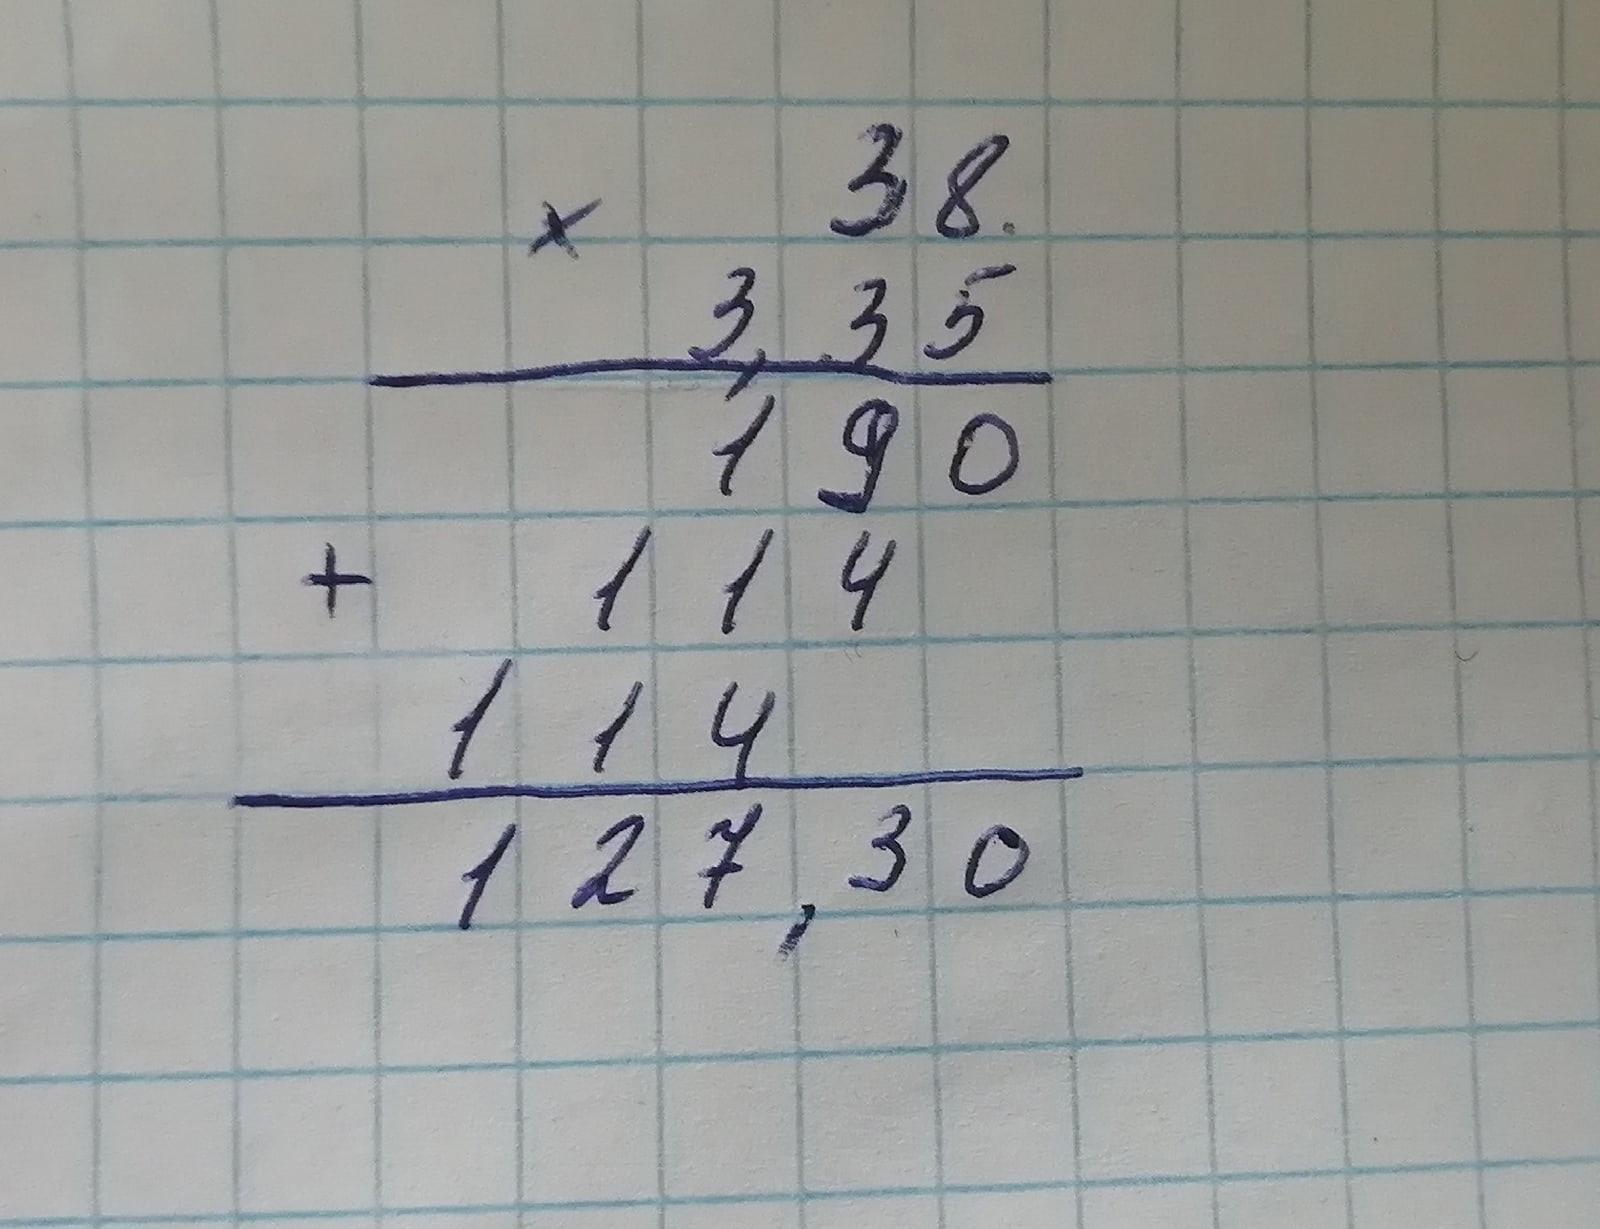 × 38.
3,35
190
+ 114
114
127,30